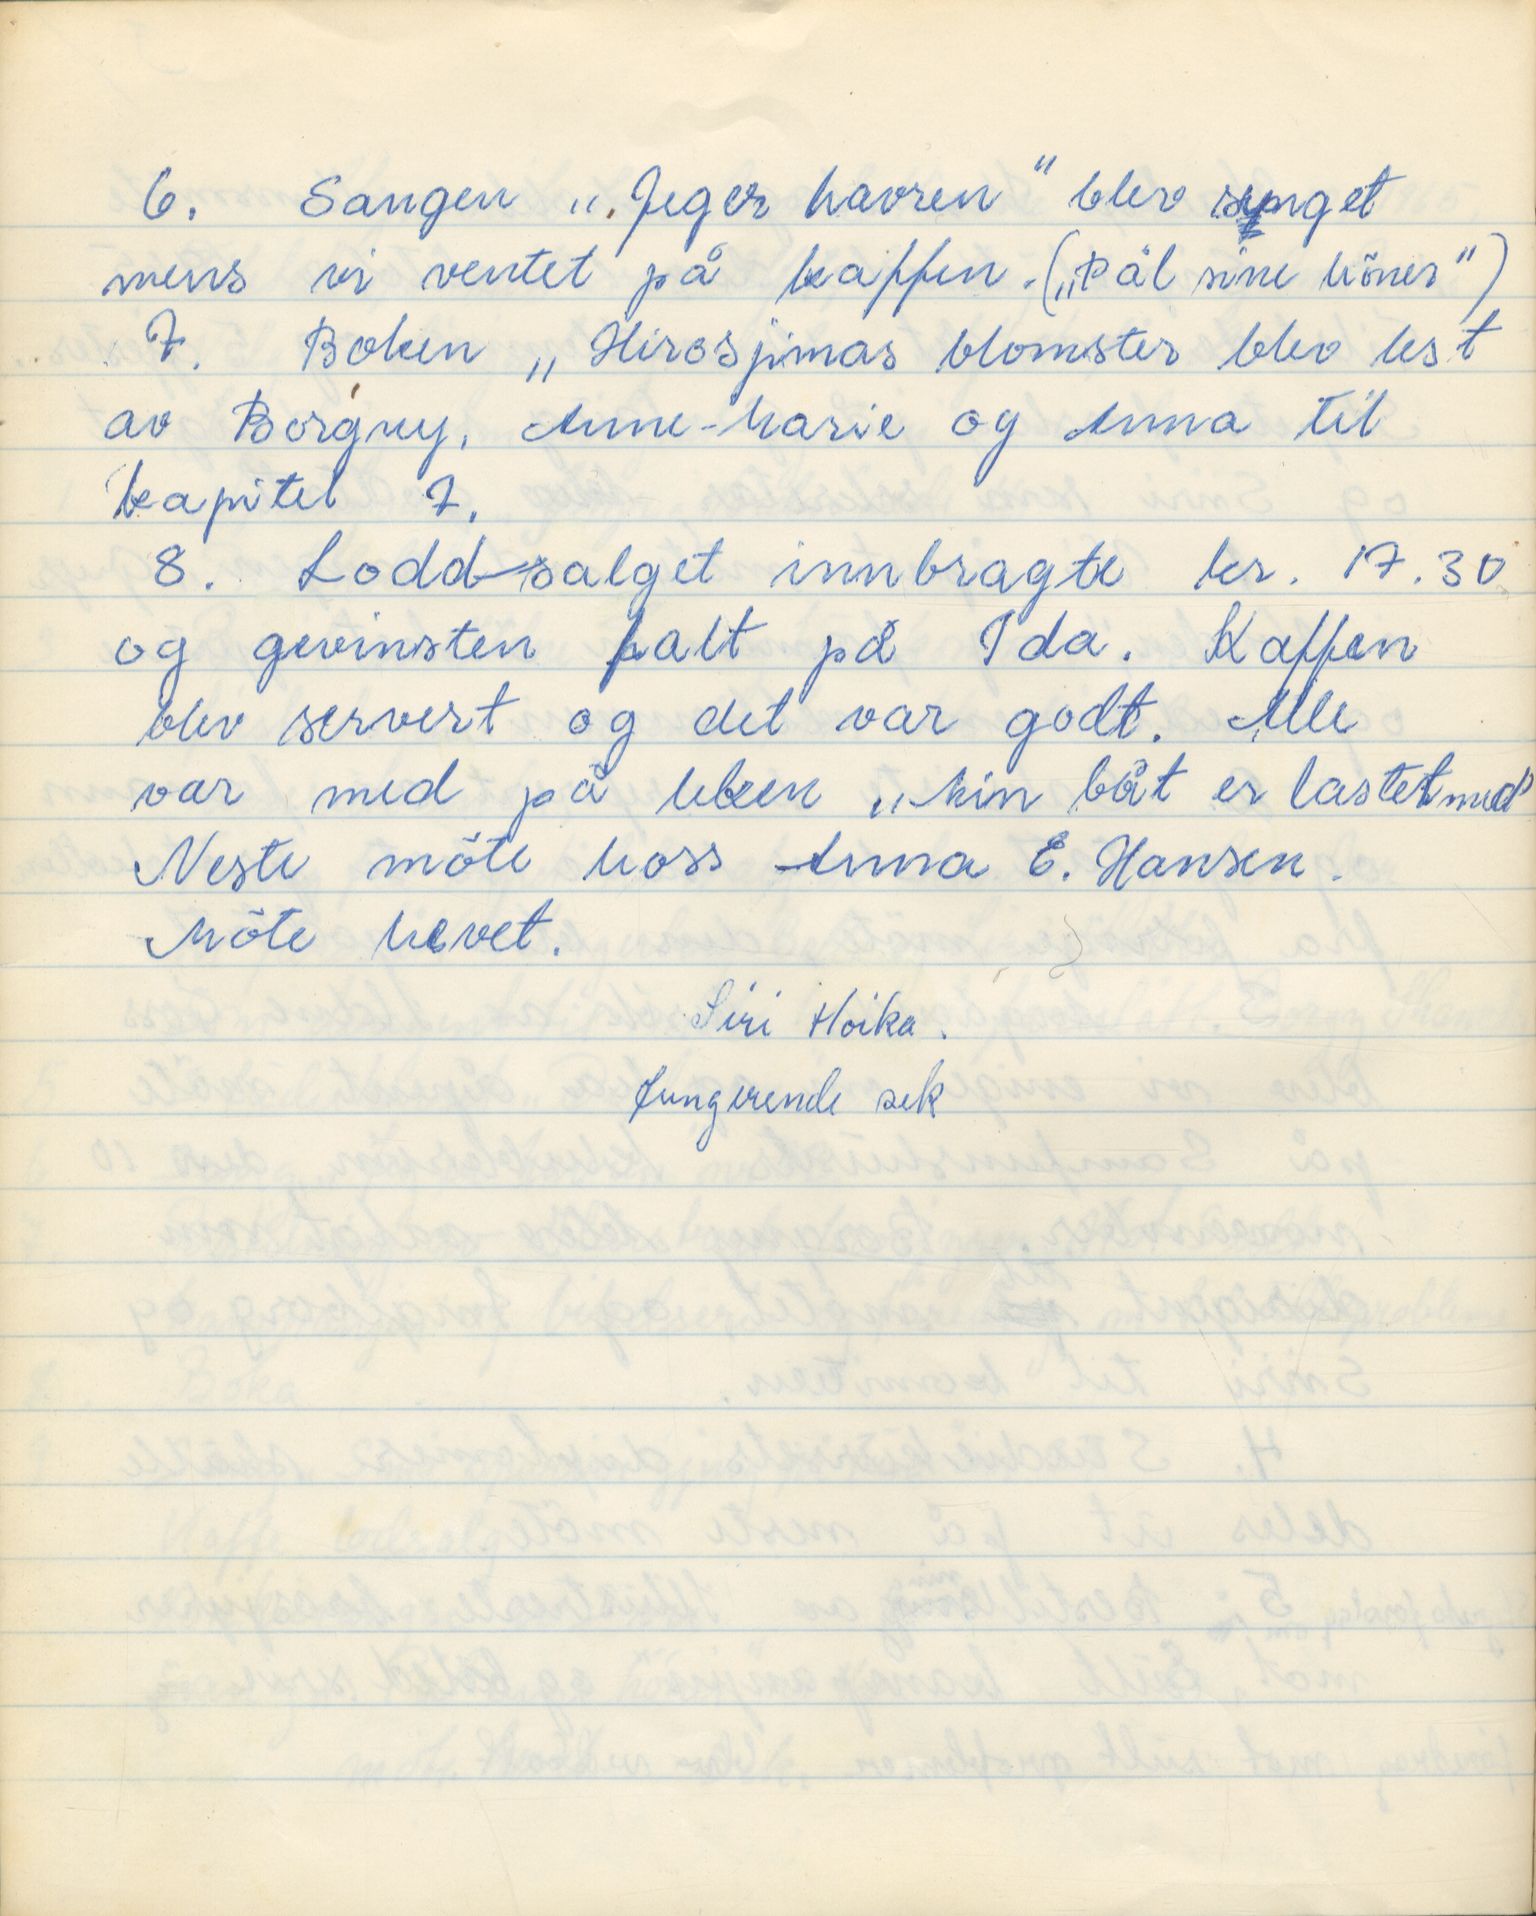 6. Sangen „Jeg er havren" blev synget
mens vi ventet på kaffen. („Pål sine höner")
7. Boken „Hirosjimas blomster blev lest
av Borgny, Anne-Marie og Anna til
kapitel 7.
8. Lodd-salget innbragte kr. 17.30
og gevinsten falt på Ida. Kaffen
blev servert og det var godt. Alle
var med på leken „Min båt er lastet med
Neste möte hoss Anna E. Hansen.
Möte hevet.
Siri Hoika.
fungerende sek